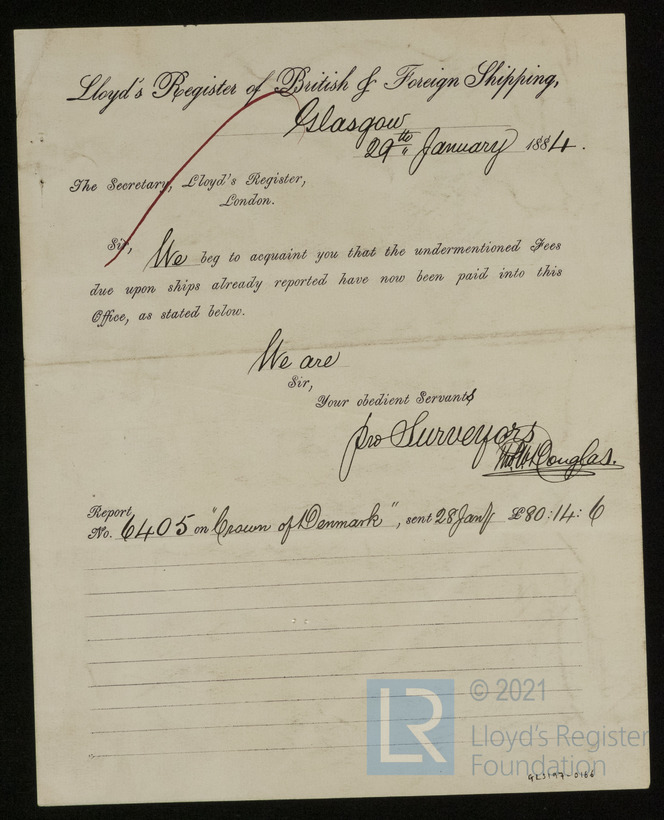 Lloyd's Register of British & Foreign Shipping,
Glasgow
29th January 1884.
The Secretary, Lloyd's Register,
London.
Sir, We beg to acquaint you that the undermentioned Fees
due upon ships already reported have now been paid into this
Office, as stated below.
We are
Sir,
Your obedient Servants
pro Surveyors
Douglas.
Report
No. 6405 on "Crown of Denmark", sent 28 Jany £80:14:6
LR
© 2021
Lloyd's Register
Foundation